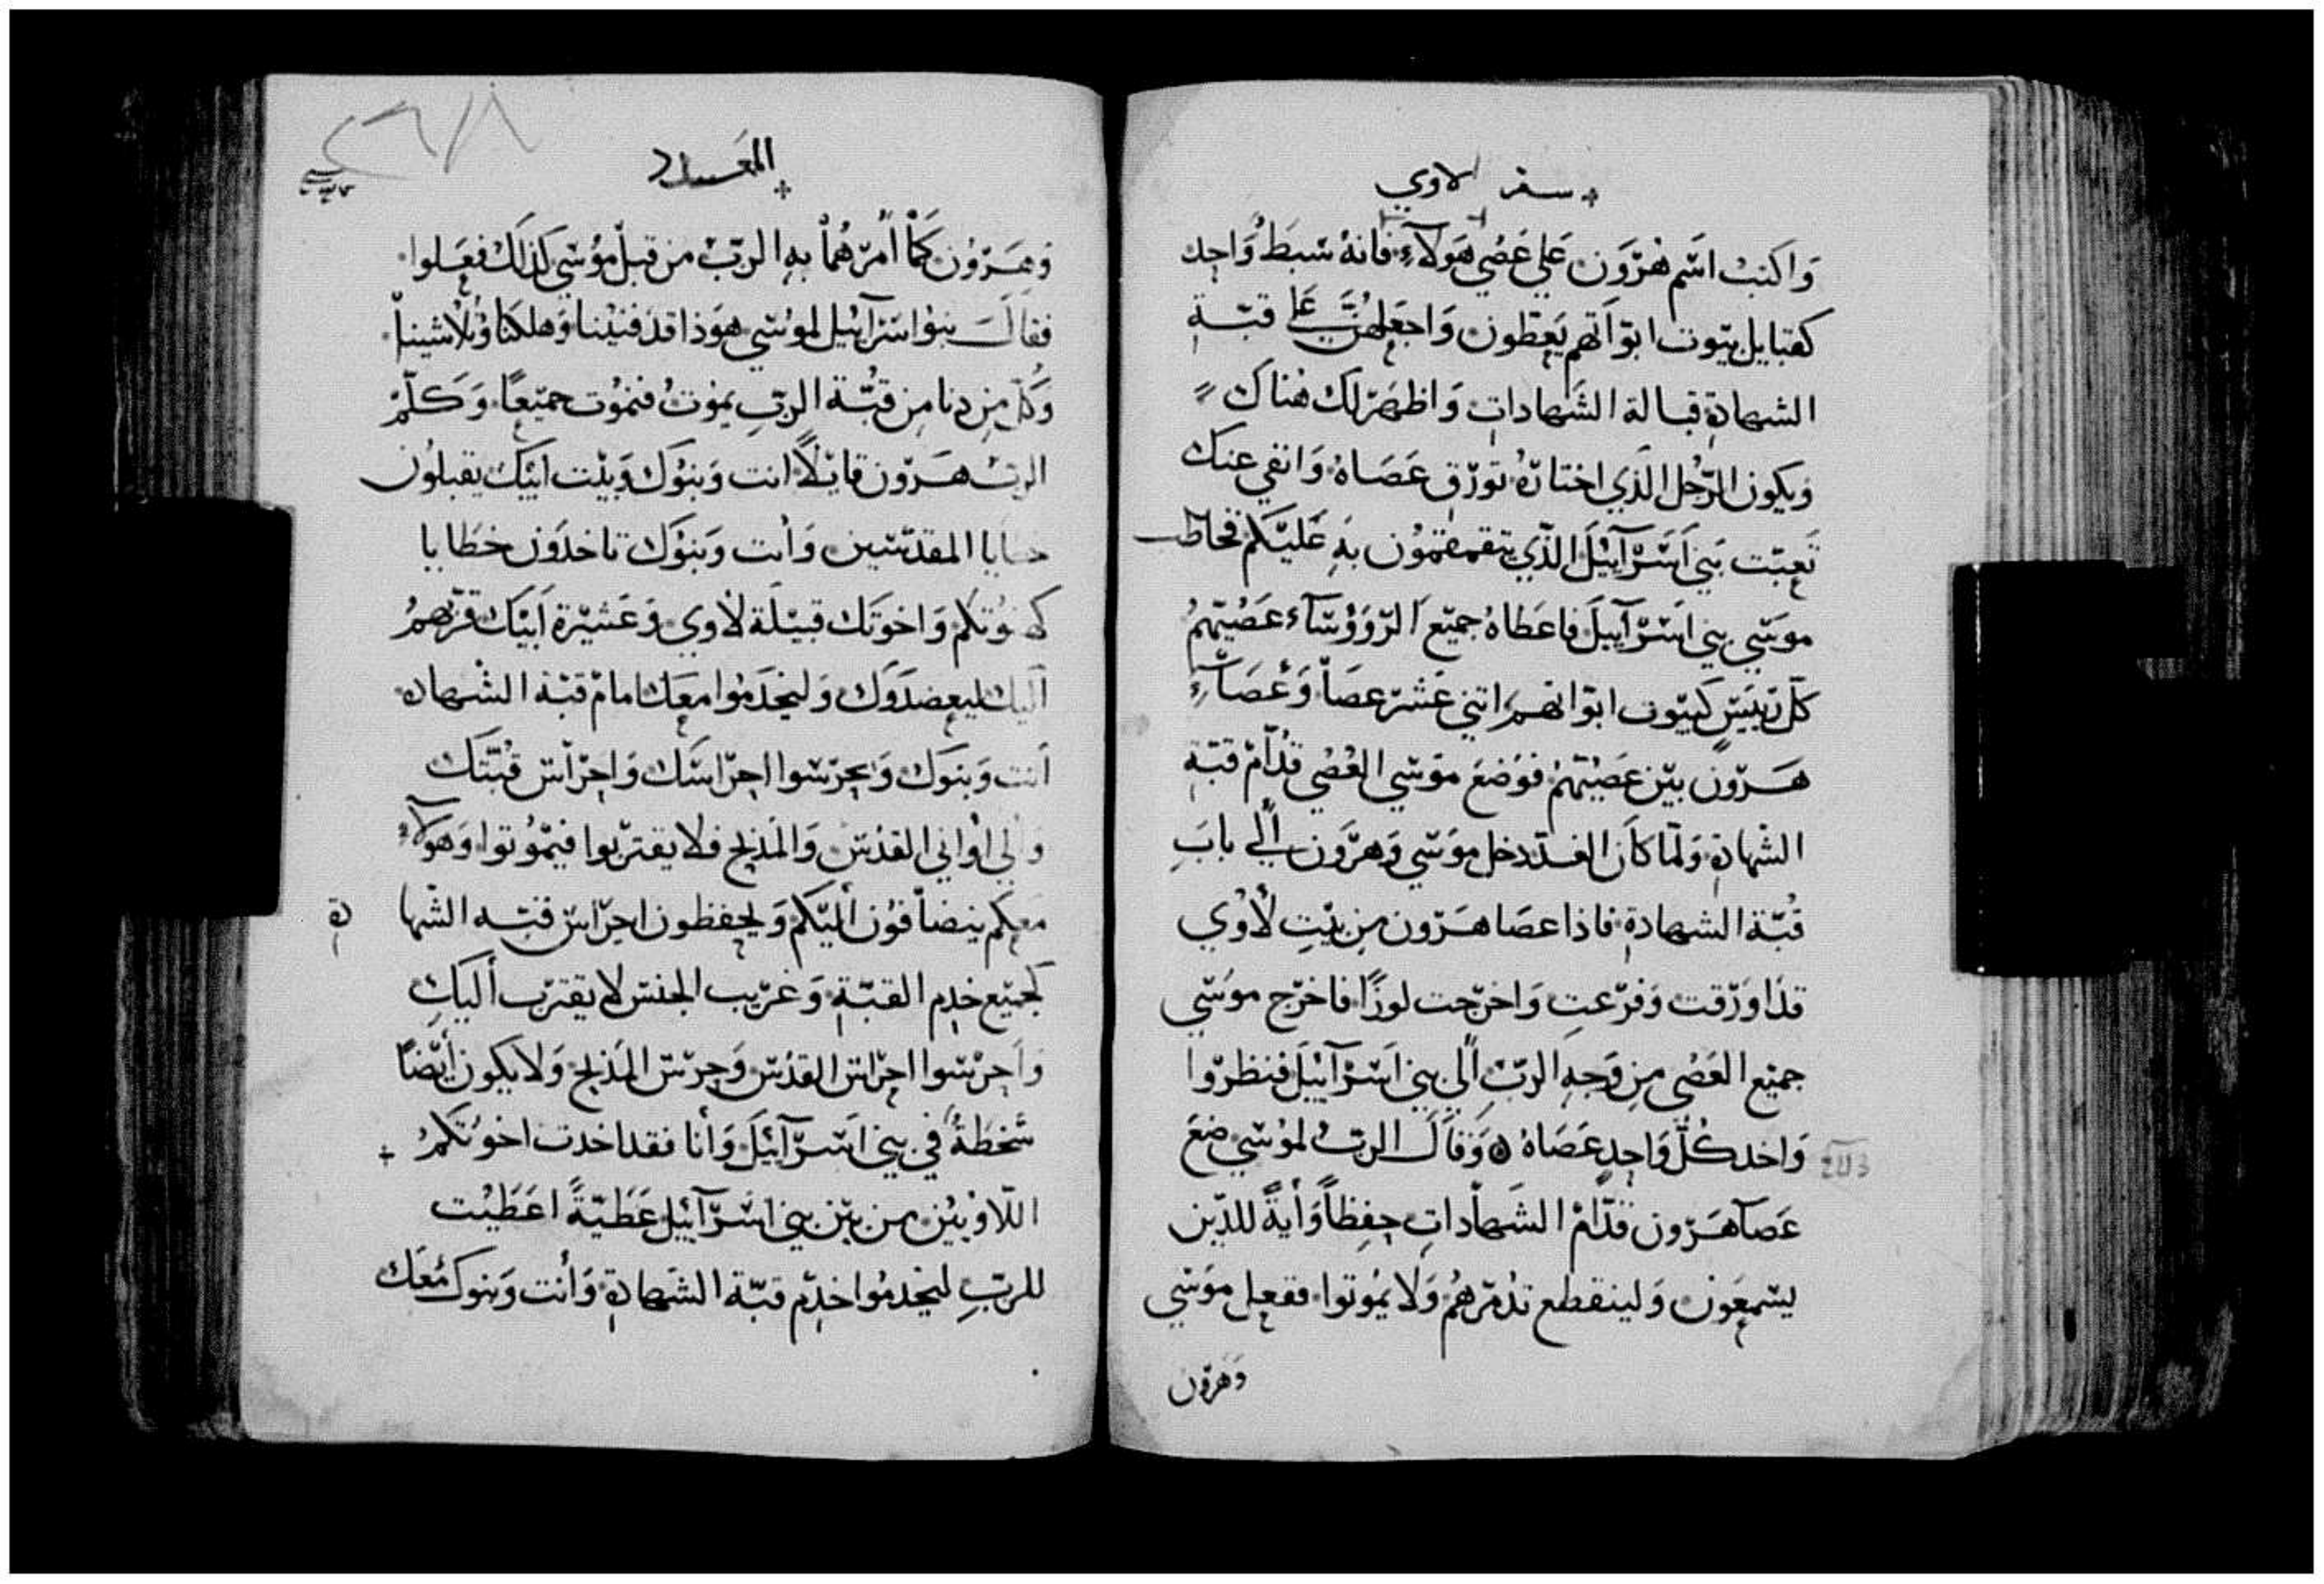 سفر الاوي
وَاكتب اسْم هرَوَن عَلي عَصُي هَولآءِ فانهُ سَبط وَاحِد
كقبايل بيَوت ابوَاتهم يَعِطون وَاجعَلهُنَّ عَلي قبّة
الشهادةِ قبالة الشَهاداتِ وَاظهَر لَك هُناك
وَيكون الرّجُل الذَي اختارهُ تَورّق عَصَاهُ وَانفي عنَك
تَعبّت بَني اَسَرَآئيلَ الذّي يتقمقمُون بهِ عَليَكم فخاطب
موسَي بني اسَرآييلَ فاعَطاهُ جميّعَ الرّوؤسَآء عَصُيّهمُ
كلّ رييَسٍ كبيّوت ابوَاتهم اتني عَشَر عصَا وَعَصَآءِ
هَرّون بيَن عَصيَهمُ فوَضعَ موَسَي العُصُي قدُّامْ قبّة
الشهادةِ وَلمّا كاَن الغد دخل موَسَي وَهرَون الَي بابَ
قُبّة الشهادةِ فاذا عصَا هَرّون مِن بيَتِ لأوُي
قدَ اورَقت وَفرّعتِ وَاخرَجت لوزًا فاخرَج موسَي
جميَع العَصُي مِن وَجهِ الربّ اَلي بني اسَرآئيلَ فنظرّوا
وَاخد كُلّ وَاحِدٍ عَصَاهُ وَقاَلَ الربُ لموُسَي ضعَ
عَصآ هَرّون قدّامْ الشَهادَاتِ حِفظاً وَأيةً للذّين
يسَمعَون وَلينقطع تدُمّرهُم وَلا يمُوتوا ففعل موَسَي
وَهرّون
العدد
وَهَرّوُن كمَا أمرَهُما بهِ الربّ من قبل موُسَي كذلَك فعَلوا
فقالَ بنوُ اسَرآئيل لموُسَي هَوَذا قدَ فنيَنا وَهلكنَا وُتلاشينا
وَكلّ مِن دنا مِن قبُّة الربّ يموُتُ فنموُت جميّعًا وَكَلّمْ
الربُ هَرّون قايَلاً انت وَبنوُك وَبيّت ابيَك يقبلوُن
خطايا المقدسَين وَأنت وَبنوُك تاخدَون خطايا
كهنوُتكم وَاخوتَك قبيَلة لأوي وَعَشيَرة أبيَك قرّبهمُ
اليك ليعضدَوَك وَليخدَموا معَك امامْ قبّة الشْهاده
أنت وَبنوَك وَيحِرَسَوا احِرَاسَك وَاحِرَاسَ قبُتّك
وَالي اوَاني القدُسَ وَالمَذبح فلا يقترَبوا فيَموُتوا وَهولآء
مَعِكم ينضافوُن أليَكم وَيحفظون احِرَاسَ قبّه الشَهاده
لجميَع خدم القبّةِ وَغرّيب الجنسَ لا يقترَب أليَكِ
وَاَحِرَسَوا احِرَاسَ القدُسَ وَحِرَسَ المَذبح وَلا يكون أيضَاً
سَخطَةُ في بني اسَرّآئيَلَ وَأنا فقد اخدت اخوُتَكمُ
اللآوييَن من بيَن بني اسَرآئيل عَطيّةً اعَطيَت
للربِّ ليخدمُوا خدم قبّة الشَهادةِ وَأنت وَبنوك مَعَك